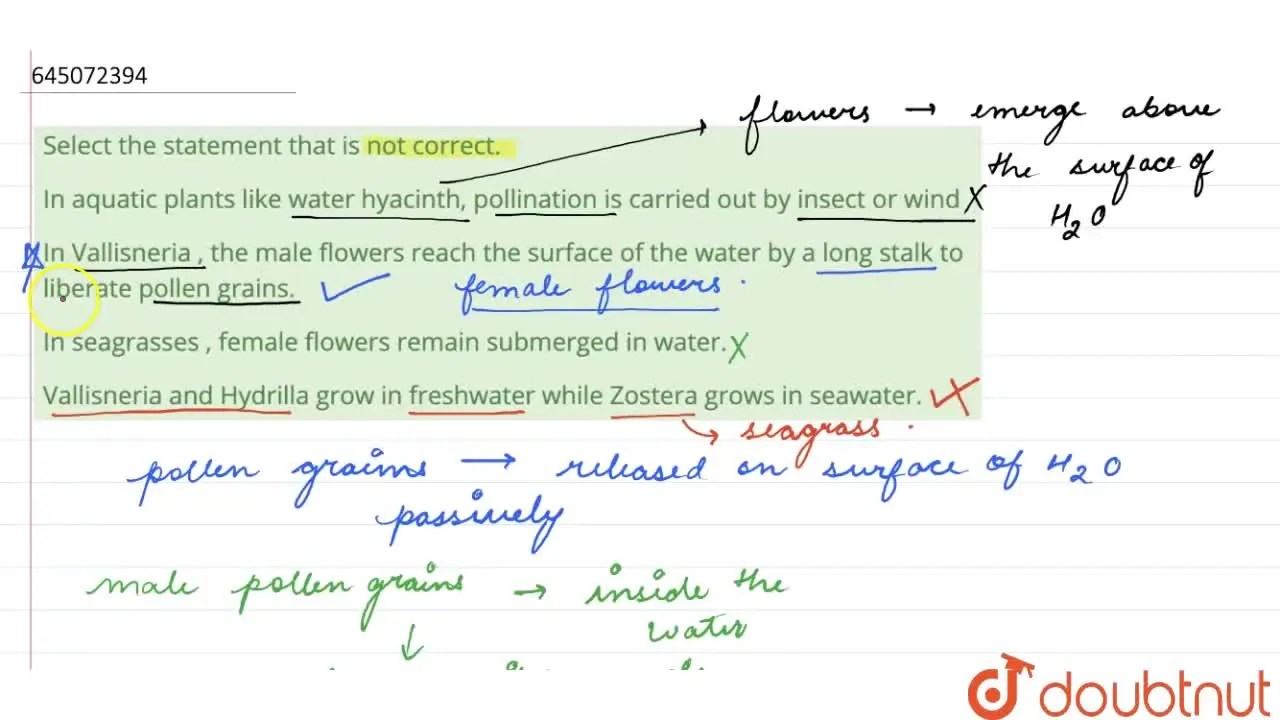 645072394
flowers → emerge above
the surface of
H2O
Select the statement that is not correct.
In aquatic plants like water hyacinth, pollination is carried out by insect or wind X
In Vallisneria , the male flowers reach the surface of the water by a long stalk to
liberate pollen grains. ✓ female flowers.
In seagrasses , female flowers remain submerged in water. X
Vallisneria and Hydrilla grow in freshwater while Zostera grows in seawater.
→ seagrass.
pollen grains → released on surface of H2O
passively
male pollen grains → inside the
water
doubtnut